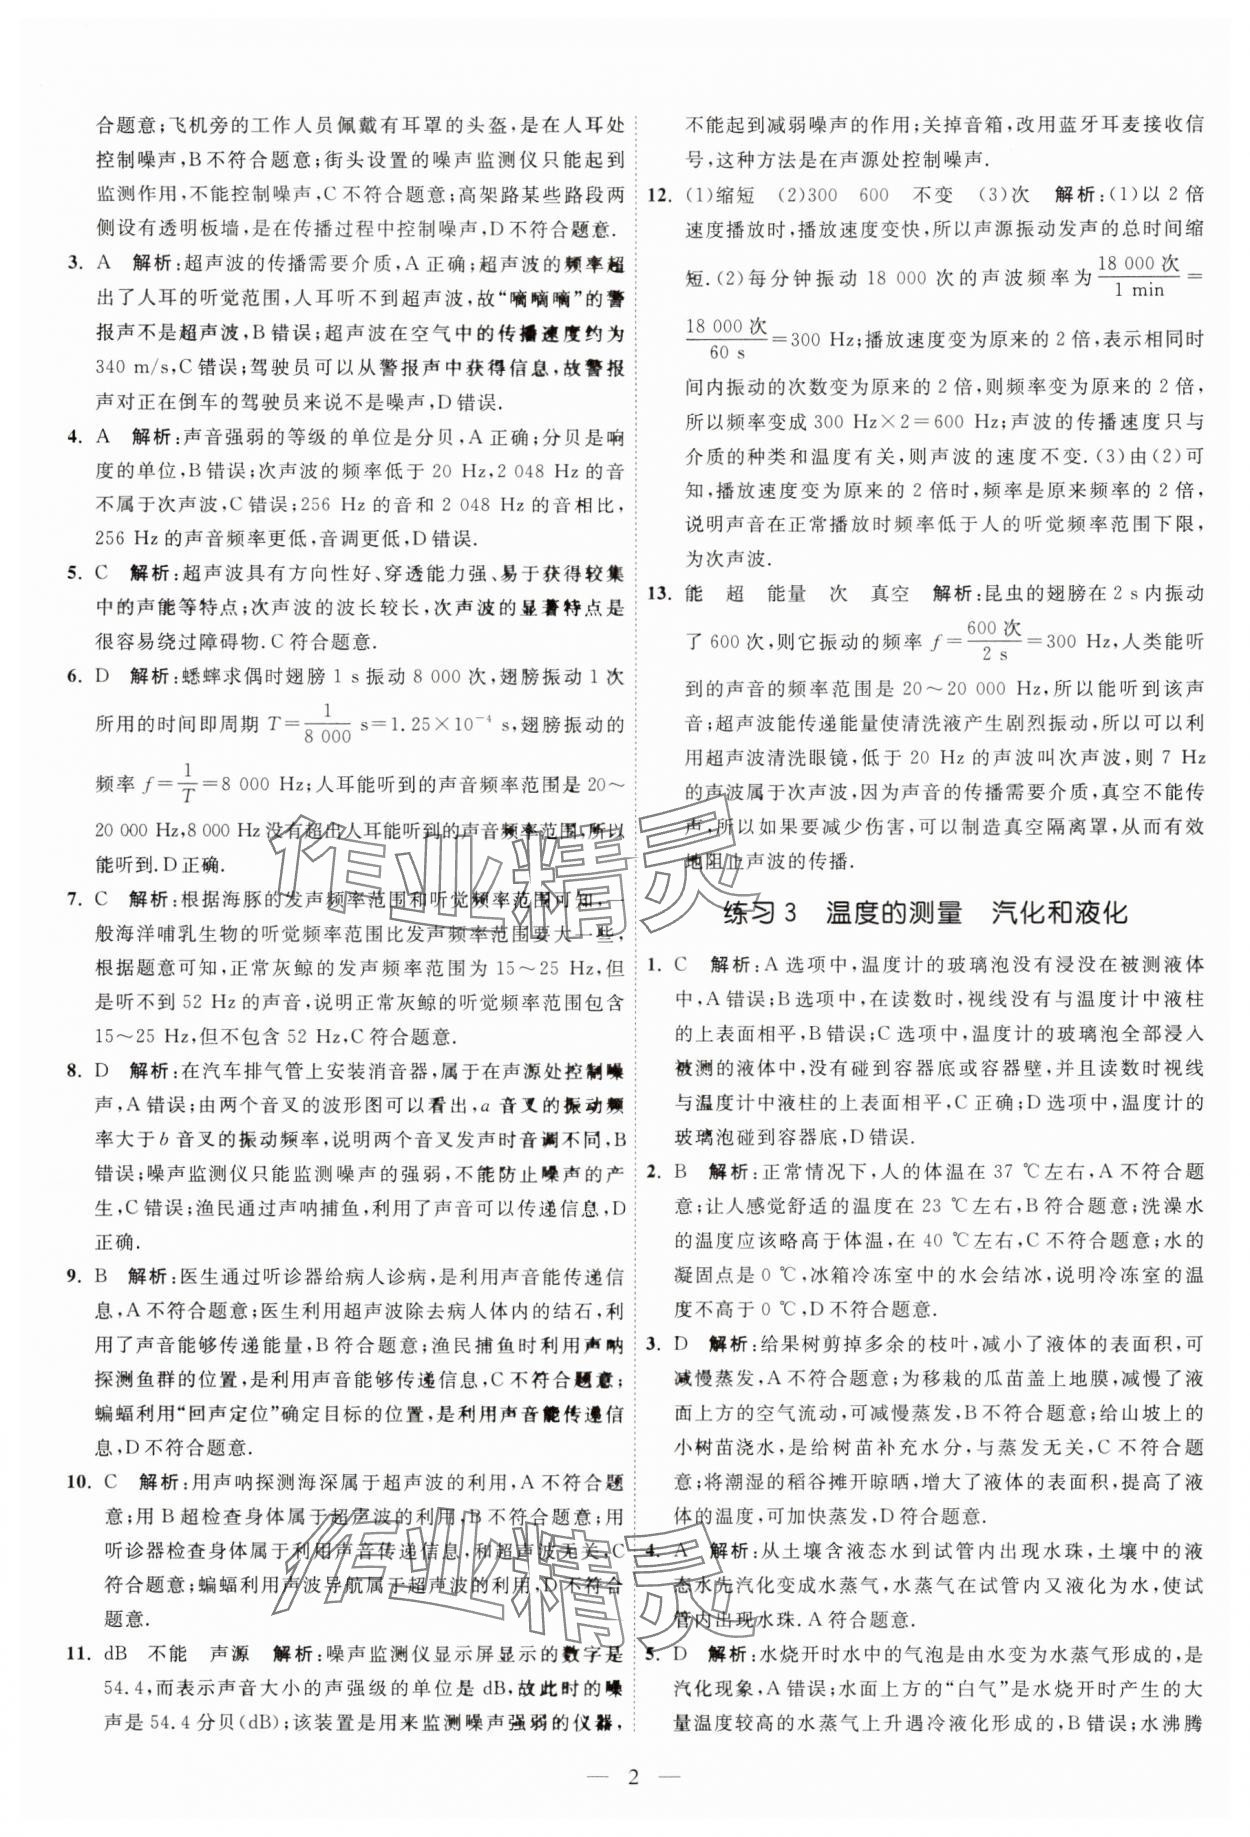 合题意;飞机旁的工作人员佩戴有耳罩的头盔,是在人耳处
控制噪声,B不符合题意;街头设置的噪声监测仪只能起到
监测作用,不能控制噪声,C不符合题意;高架路某些路段两
侧设有透明板墙,是在传播过程中控制噪声,D不符合题意.
3. A 解析:超声波的传播需要介质,A正确;超声波的频率超
出了人耳的听觉范围,人耳听不到超声波,故“嘀嘀嘀”的警
报声不是超声波,B错误;超声波在空气中的传播速度约为
340 m/s,C错误;驾驶员可以从警报声中获得信息,故警报
声对正在倒车的驾驶员来说不是噪声,D错误.
4. A 解析:声音强弱的等级的单位是分贝,A正确;分贝是响
度的单位,B错误;次声波的频率低于20 Hz,2 048 Hz的音
不属于次声波,C错误;256 Hz的音和2 048 Hz的音相比,
256 Hz的声音频率更低,音调更低,D错误.
5. C 解析:超声波具有方向性好、穿透能力强、易于获得较集
中的声能等特点;次声波的波长较长,次声波的显著特点是
很容易绕过障碍物.C符合题意.
6. D 解析:蟋蟀求偶时翅膀1 s振动8 000次,翅膀振动1次
所用的时间即周期 T=1/8 000 s=1.25×10⁻⁴ s,翅膀振动的
频率 f=1/T=8 000 Hz;人耳能听到的声音频率范围是20～
20 000 Hz,8 000 Hz没有超出人耳能听到的声音频率范围,所以
能听到.D正确.
7. C 解析:根据海豚的发声频率范围和听觉频率范围可知,一
般海洋哺乳生物的听觉频率范围比发声频率范围要大一些,
根据题意可知,正常灰鲸的发声频率范围为15～25 Hz,但
是听不到52 Hz的声音,说明正常灰鲸的听觉频率范围包含
15～25 Hz,但不包含52 Hz,C符合题意.
8. D 解析:在汽车排气管上安装消音器,属于在声源处控制噪
声,A错误;由两个音叉的波形图可以看出,a音叉的振动频
率大于b音叉的振动频率,说明两个音叉发声时音调不同,B
错误;噪声监测仪只能监测噪声的强弱,不能防止噪声的产
生,C错误;渔民通过声呐捕鱼,利用了声音可以传递信息,D
正确.
9. B 解析:医生通过听诊器给病人诊病,是利用声音能传递信
息,A不符合题意;医生利用超声波除去病人体内的结石,利
用了声音能够传递能量,B符合题意;渔民捕鱼时利用声呐
探测鱼群的位置,是利用声音能够传递信息,C不符合题意;
蝙蝠利用“回声定位”确定目标的位置,是利用声音能传递信
息,D不符合题意.
10. C 解析:用声呐探测海深属于超声波的利用,A不符合题
意;用B超检查身体属于超声波的利用,B不符合题意;用
听诊器检查身体属于利用声音传递信息,和超声波无关,C
符合题意;蝙蝠利用声波导航属于超声波的利用,D不符合
题意.
11. dB 不能 声源 解析:噪声监测仪显示屏显示的数字是
54.4,而表示声音大小的声强级的单位是dB,故此时的噪
声是54.4分贝(dB);该装置是用来监测噪声强弱的仪器,
不能起到减弱噪声的作用;关掉音箱,改用蓝牙耳麦接收信
号,这种方法是在声源处控制噪声.
12. (1)缩短 (2)300 600 不变 (3)次 解析:(1)以2倍
速度播放时,播放速度变快,所以声源振动发声的总时间缩
短.(2)每分钟振动18 000次的声波频率为18 000 次/1 min=
18 000 次/60 s=300 Hz;播放速度变为原来的2倍,表示相同时
间内振动的次数变为原来的2倍,则频率变为原来的2倍,
所以频率变成300 Hz×2=600 Hz;声波的传播速度只与
介质的种类和温度有关,则声波的速度不变.(3)由(2)可
知,播放速度变为原来的2倍时,频率是原来频率的2倍,
说明声音在正常播放时频率低于人的听觉频率范围下限,
为次声波.
13. 能 超 能量 次 真空 解析:昆虫的翅膀在2 s内振动
了600次,则它振动的频率 f=600 次/2 s=300 Hz,人类能听
到的声音的频率范围是20～20 000 Hz,所以能听到该声
音;超声波能传递能量使清洗液产生剧烈振动,所以可以利
用超声波清洗眼镜,低于20 Hz的声波叫次声波,则7 Hz
的声波属于次声波,因为声音的传播需要介质,真空不能传
声,所以如果要减少伤害,可以制造真空隔离罩,从而有效
地阻止声波的传播.
练习3 温度的测量 汽化和液化
1. C 解析:A选项中,温度计的玻璃泡没有浸没在被测液体
中,A错误;B选项中,在读数时,视线没有与温度计中液柱
的上表面相平,B错误;C选项中,温度计的玻璃泡全部浸入
被测的液体中,没有碰到容器底或容器壁,并且读数时视线
与温度计中液柱的上表面相平,C正确;D选项中,温度计的
玻璃泡碰到容器底,D错误.
2. B 解析:正常情况下,人的体温在37 ℃左右,A不符合题
意;让人感觉舒适的温度在23 ℃左右,B符合题意;洗澡水
的温度应该略高于体温,在40 ℃左右,C不符合题意;水的
凝固点是0 ℃,冰箱冷冻室中的水会结冰,说明冷冻室的温
度不高于0 ℃,D不符合题意.
3. D 解析:给果树剪掉多余的枝叶,减小了液体的表面积,可
减慢蒸发,A不符合题意;为移栽的瓜苗盖上地膜,减慢了液
面上方的空气流动,可减慢蒸发,B不符合题意;给山坡上的
小树苗浇水,是给树苗补充水分,与蒸发无关,C不符合题
意;将潮湿的稻谷摊开晾晒,增大了液体的表面积,提高了液
体的温度,可加快蒸发,D符合题意.
4. A 解析:从土壤含液态水到试管内出现水珠,土壤中的液
态水先汽化变成水蒸气,水蒸气在试管内又液化,使试
管内出现水珠.A符合题意.
5. D 解析:水烧开时水中的气泡是由水变为水蒸气形成的,是
汽化现象,A错误;水面上方的“白气”是水烧开时产生的大
量温度较高的水蒸气上升遇冷液化形成的,B错误;水沸腾
作业精灵
作业精灵
— 2 —